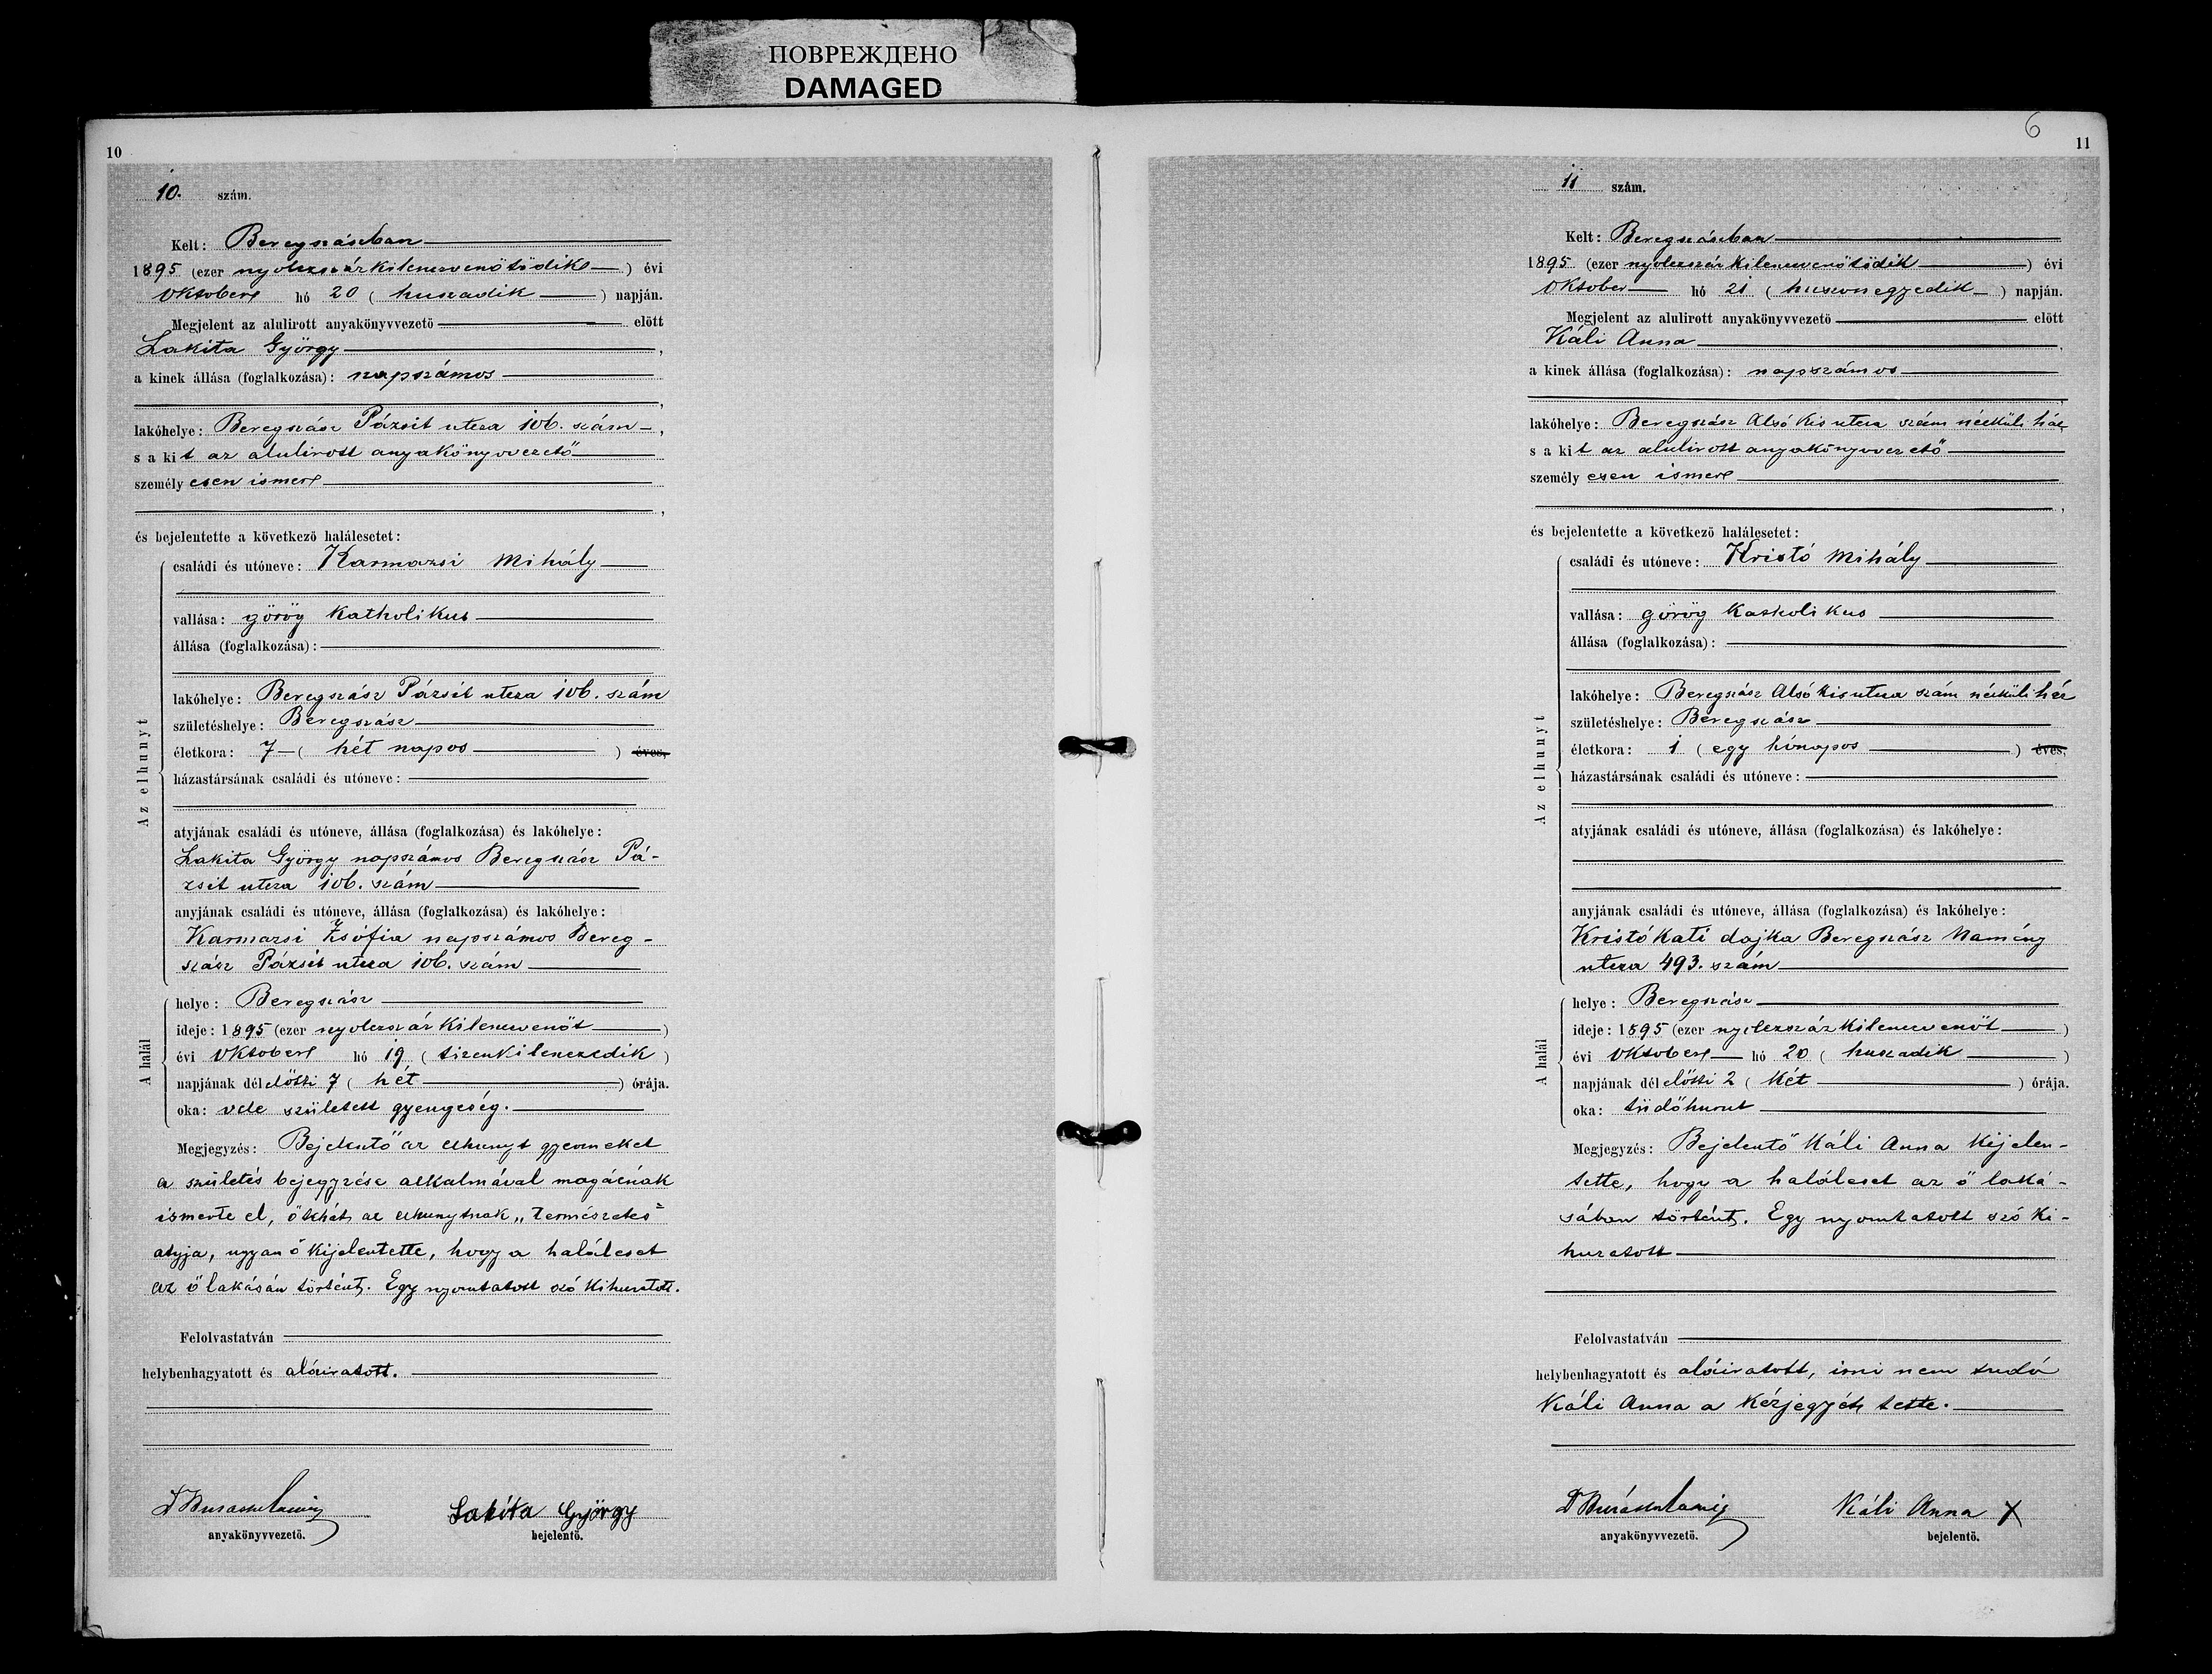 ПОВРЕЖДЕНО
DAMAGED
10
10. szám.
Kelt: Beregszászban
1895 (ezer nyolczszázkilenczvenötödik) évi
Oktober hó 20 (huszadik) napján.
Megjelent az alulirott anyakönyvvezető előtt
Lakita György,
a kinek állása (foglalkozása): napszámos
,
lakóhelye: Beregszász Pázsit utcza 106. szám,
s a kit az alulirott anyakönyvvezető
személyesen ismer
,
és bejelentette a következő halálesetet:
Az elhunyt
családi és utóneve: Karmazsi Mihály
vallása: görög katholikus
állása (foglalkozása):
lakóhelye: Beregszász Pázsit utcza 106. szám
születéshelye: Beregszász
életkora: 7 (hét napos) éves,
házastársának családi és utóneve:
atyjának családi és utóneve, állása (foglalkozása) és lakóhelye:
Lakita György napszámos Beregszász Pá-
zsit utcza 106. szám
anyjának családi és utóneve, állása (foglalkozása) és lakóhelye:
Karmazsi Zsófia napszámos Bereg-
szász Pázsit utcza 106. szám
A halál
helye: Beregszász
ideje: 1895 (ezer nyolczszázkilenczvenöt)
évi Oktober hó 19 (tizenkilenczedik)
napjának délelőtti 7 (hét) órája.
oka: vele született gyengeség.
Megjegyzés: Bejelentő az elhunyt gyermeket
a születés bejegyzése alkalmával magáénak
ismerte el, ő tehát az elhunytnak „természetes"
atyja, ugyan ő kijelentette, hogy a haláleset
az ő lakásán történt. Egy nyomtatott szó kihuzatott.
Felolvastatván
helybenhagyatott és aláiratott.
Lakita György
anyakönyvvezető. bejelentő.
6
11
11 szám.
Kelt: Beregszászban
1895 (ezer nyolczszázkilenczvenötödik) évi
Oktober hó 21 (huszonegyedik) napján.
Megjelent az alulirott anyakönyvvezető előtt
Káli Anna,
a kinek állása (foglalkozása): napszámos
,
lakóhelye: Beregszász Alsó kis utcza szám nélküli ház
s a kit az alulirott anyakönyvvezető
személyesen ismer
,
és bejelentette a következő halálesetet:
Az elhunyt
családi és utóneve: Kristó Mihály
vallása: görög katholikus
állása (foglalkozása):
lakóhelye: Beregszász Alsó kis utcza szám nélküli ház
születéshelye: Beregszász
életkora: 1 (egy hónapos) éves,
házastársának családi és utóneve:
atyjának családi és utóneve, állása (foglalkozása) és lakóhelye:
anyjának családi és utóneve, állása (foglalkozása) és lakóhelye:
Kristó Kati dajka Beregszász Namény
utcza 493. szám
A halál
helye: Beregszász
ideje: 1895 (ezer nyolczszázkilenczvenöt)
évi Oktober hó 20 (huszadik)
napjának délelőtti 2 (két) órája.
oka: tüdőhurut
Megjegyzés: Bejelentő Káli Anna kijelen-
tette, hogy a haláleset az ő laká-
sában történt. Egy nyomtatott szó ki-
huzatott
Felolvastatván
helybenhagyatott és aláiratott, irni nem tudó
Káli Anna a kézjegyét tette.
Káli Anna X
anyakönyvvezető. bejelentő.